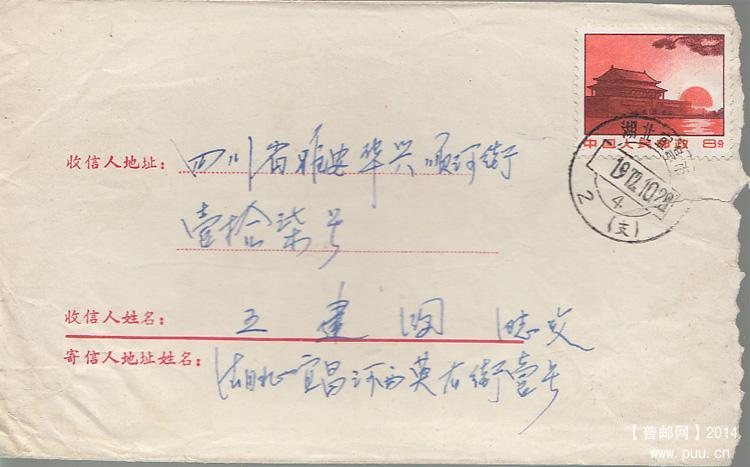 中国人民邮政 8分
湖北 宜昌市
1972.10.28
4
2 (支)
收信人地址: 四川省雅安华兴顺河街
壹拾柒号
收信人姓名: 王建国 同志 收
寄信人地址姓名: 湖北宜昌 河西 街壹号
【普邮网】2014
www.puu.cn